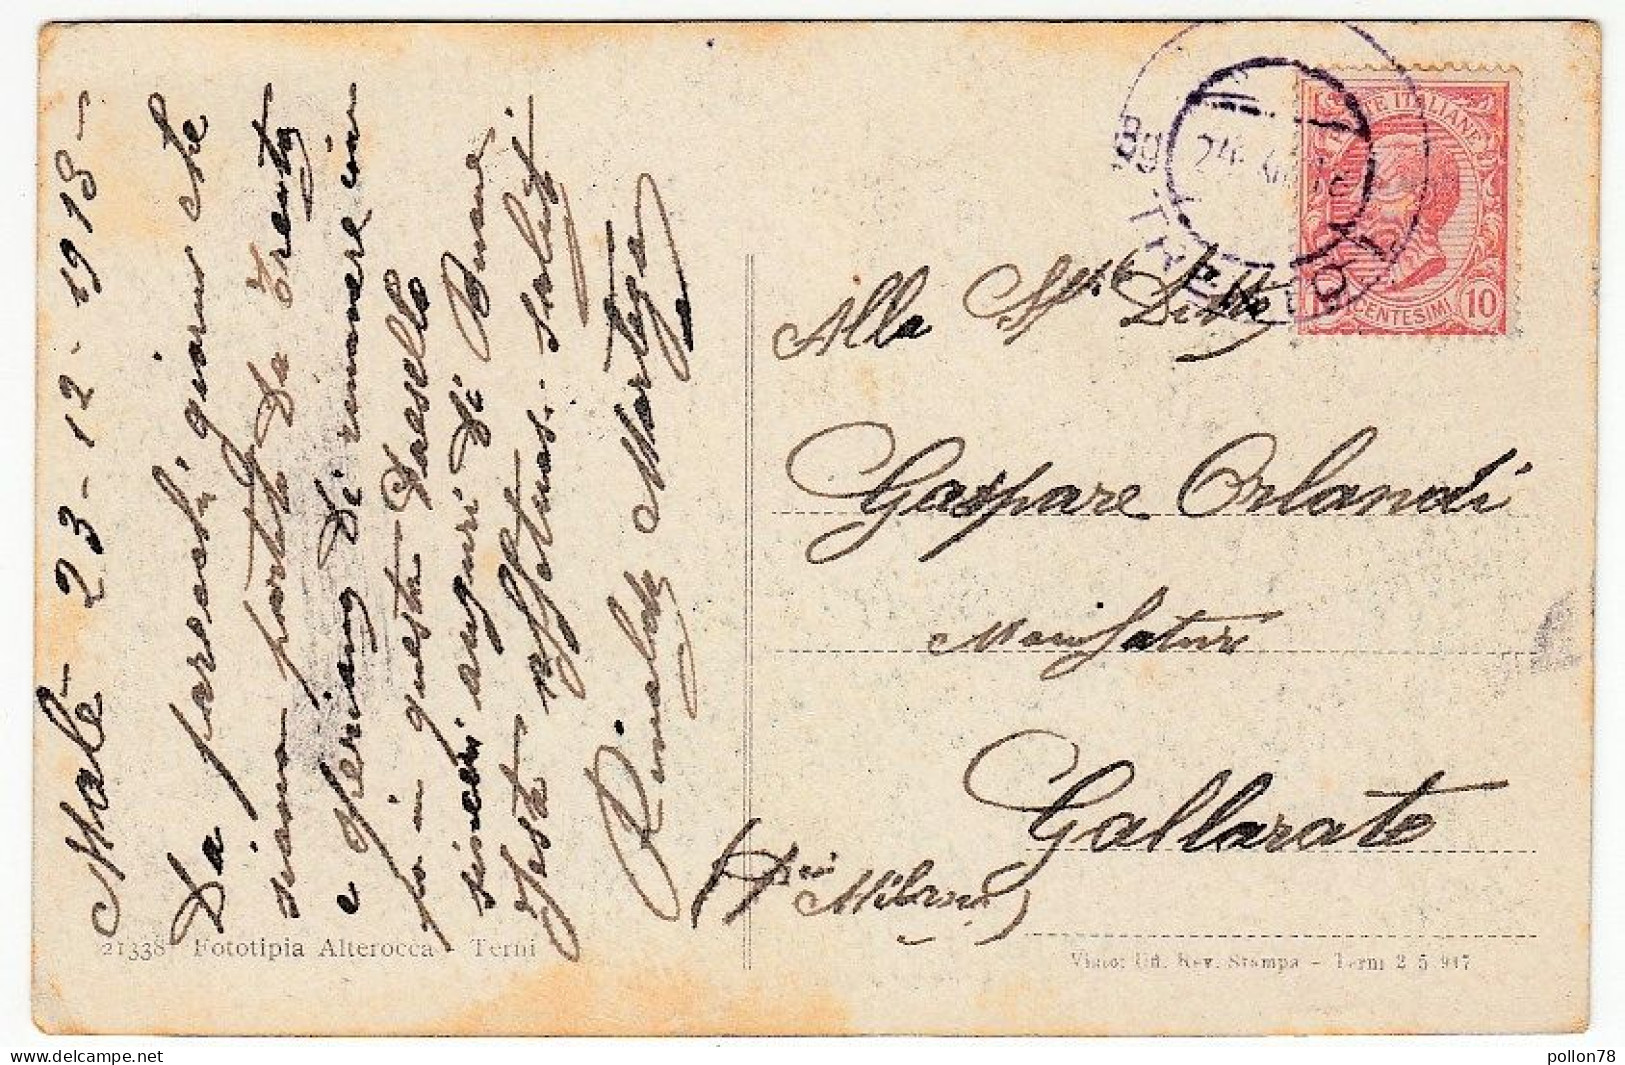 Malè - 23-12-1918 -
Da parecchi giorni che
siamo partiti da Trento
e speriamo di rimanere un
po in questo Paesello
sinceri auguri di Buone
feste affettuosi saluti
Rinaldo Martegani
Alla Spt. Ditta
Gaspare Orlandi
Manifatture
Gallarate
(Prov. Milano)
POSTE ITALIANE
CENTESIMI 10
21338 Fototipia Alterocca - Terni
Visto: Uff. Rev. Stampa - Terni 2 5 917
pollon78